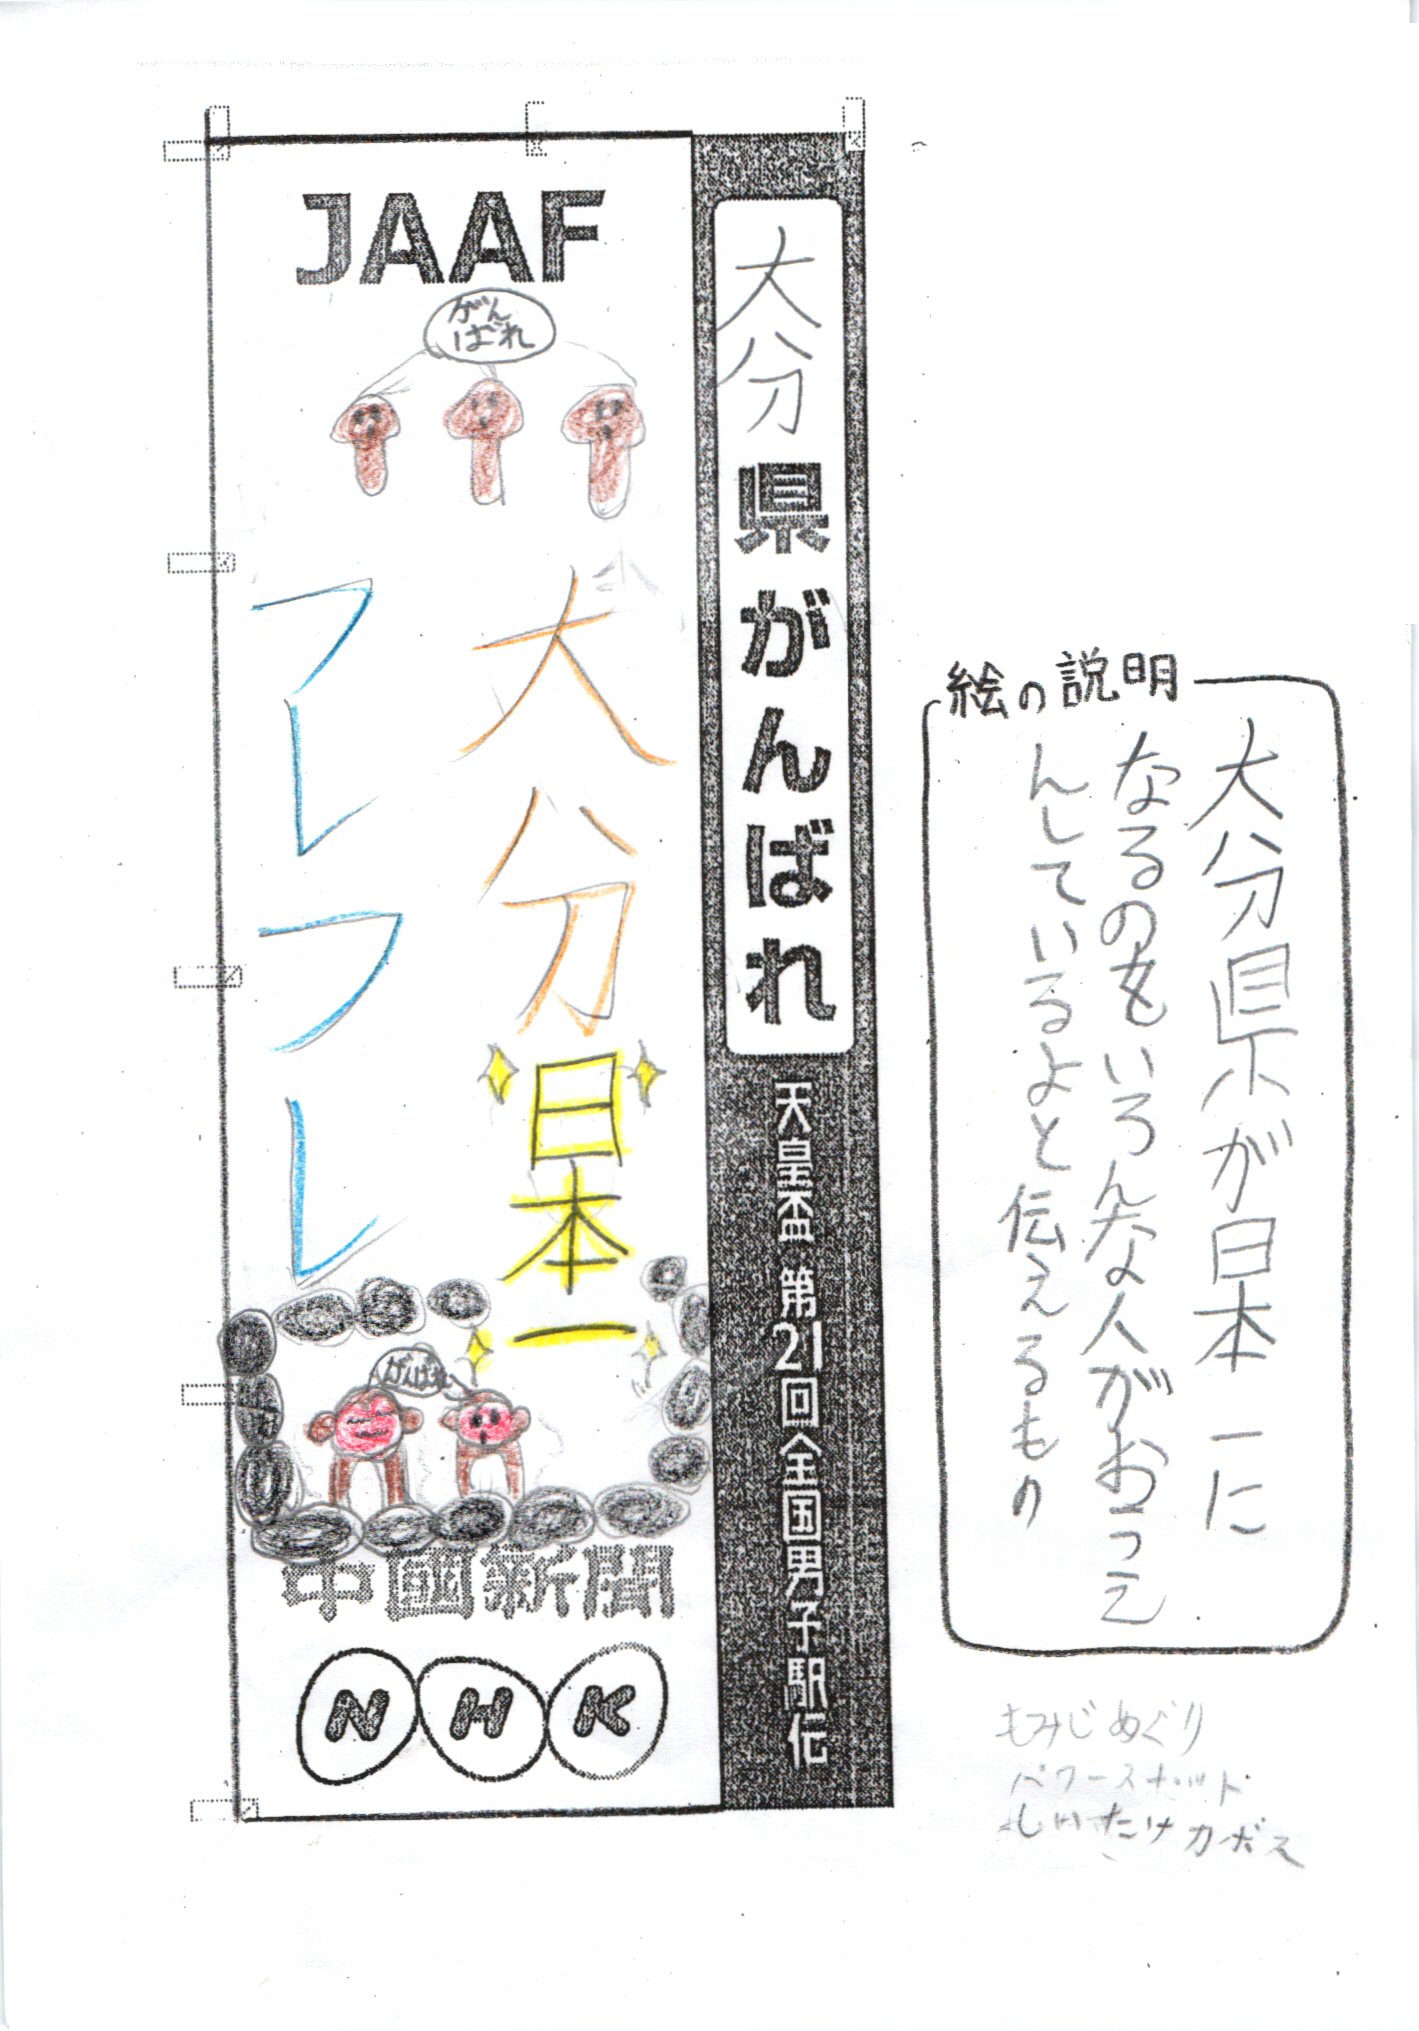 JAAF
がん
ばれ
大分県がんばれ
天皇盃 第21回全国男子駅伝
大分日本一
フレフレ
がんばれ
中國新聞
NHK
絵の説明
大分県が日本一に
なるのをいろんな人がおうえ
んしているよと伝えるもの
もみじめぐり
パワースポット
しいたけカボス